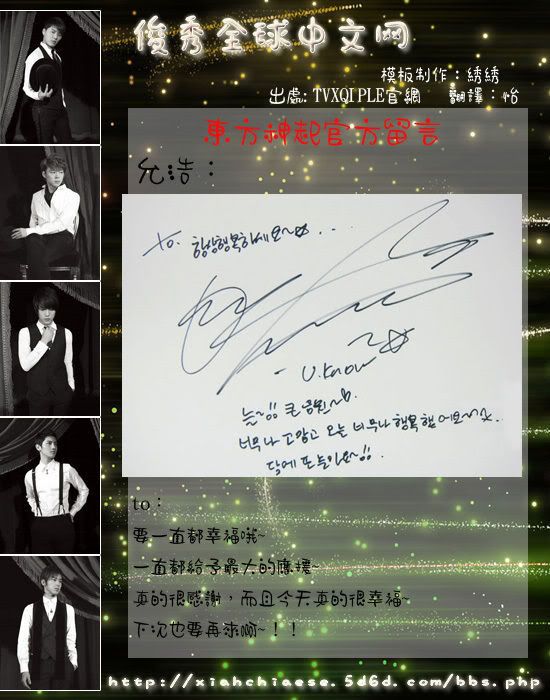 俊秀全球中文网
模板制作：綉綉
出處: TVXQI PLE官網 翻譯：怡
東方神起官方留言
允浩：
to. 항상행복하세요~☆...
U.Know~☆
늘~!! 큰 응원~
너무나 고맙고 오늘 너무나 행복했어요~☆.
담에 또 놀아요~!!.
to：
要一直都幸福哦~
一直都給予最大的應援~
真的很感謝，而且今天真的很幸福~
下次也要再來啊~！！
http://xiahchiaese.5d6d.com/bbs.php